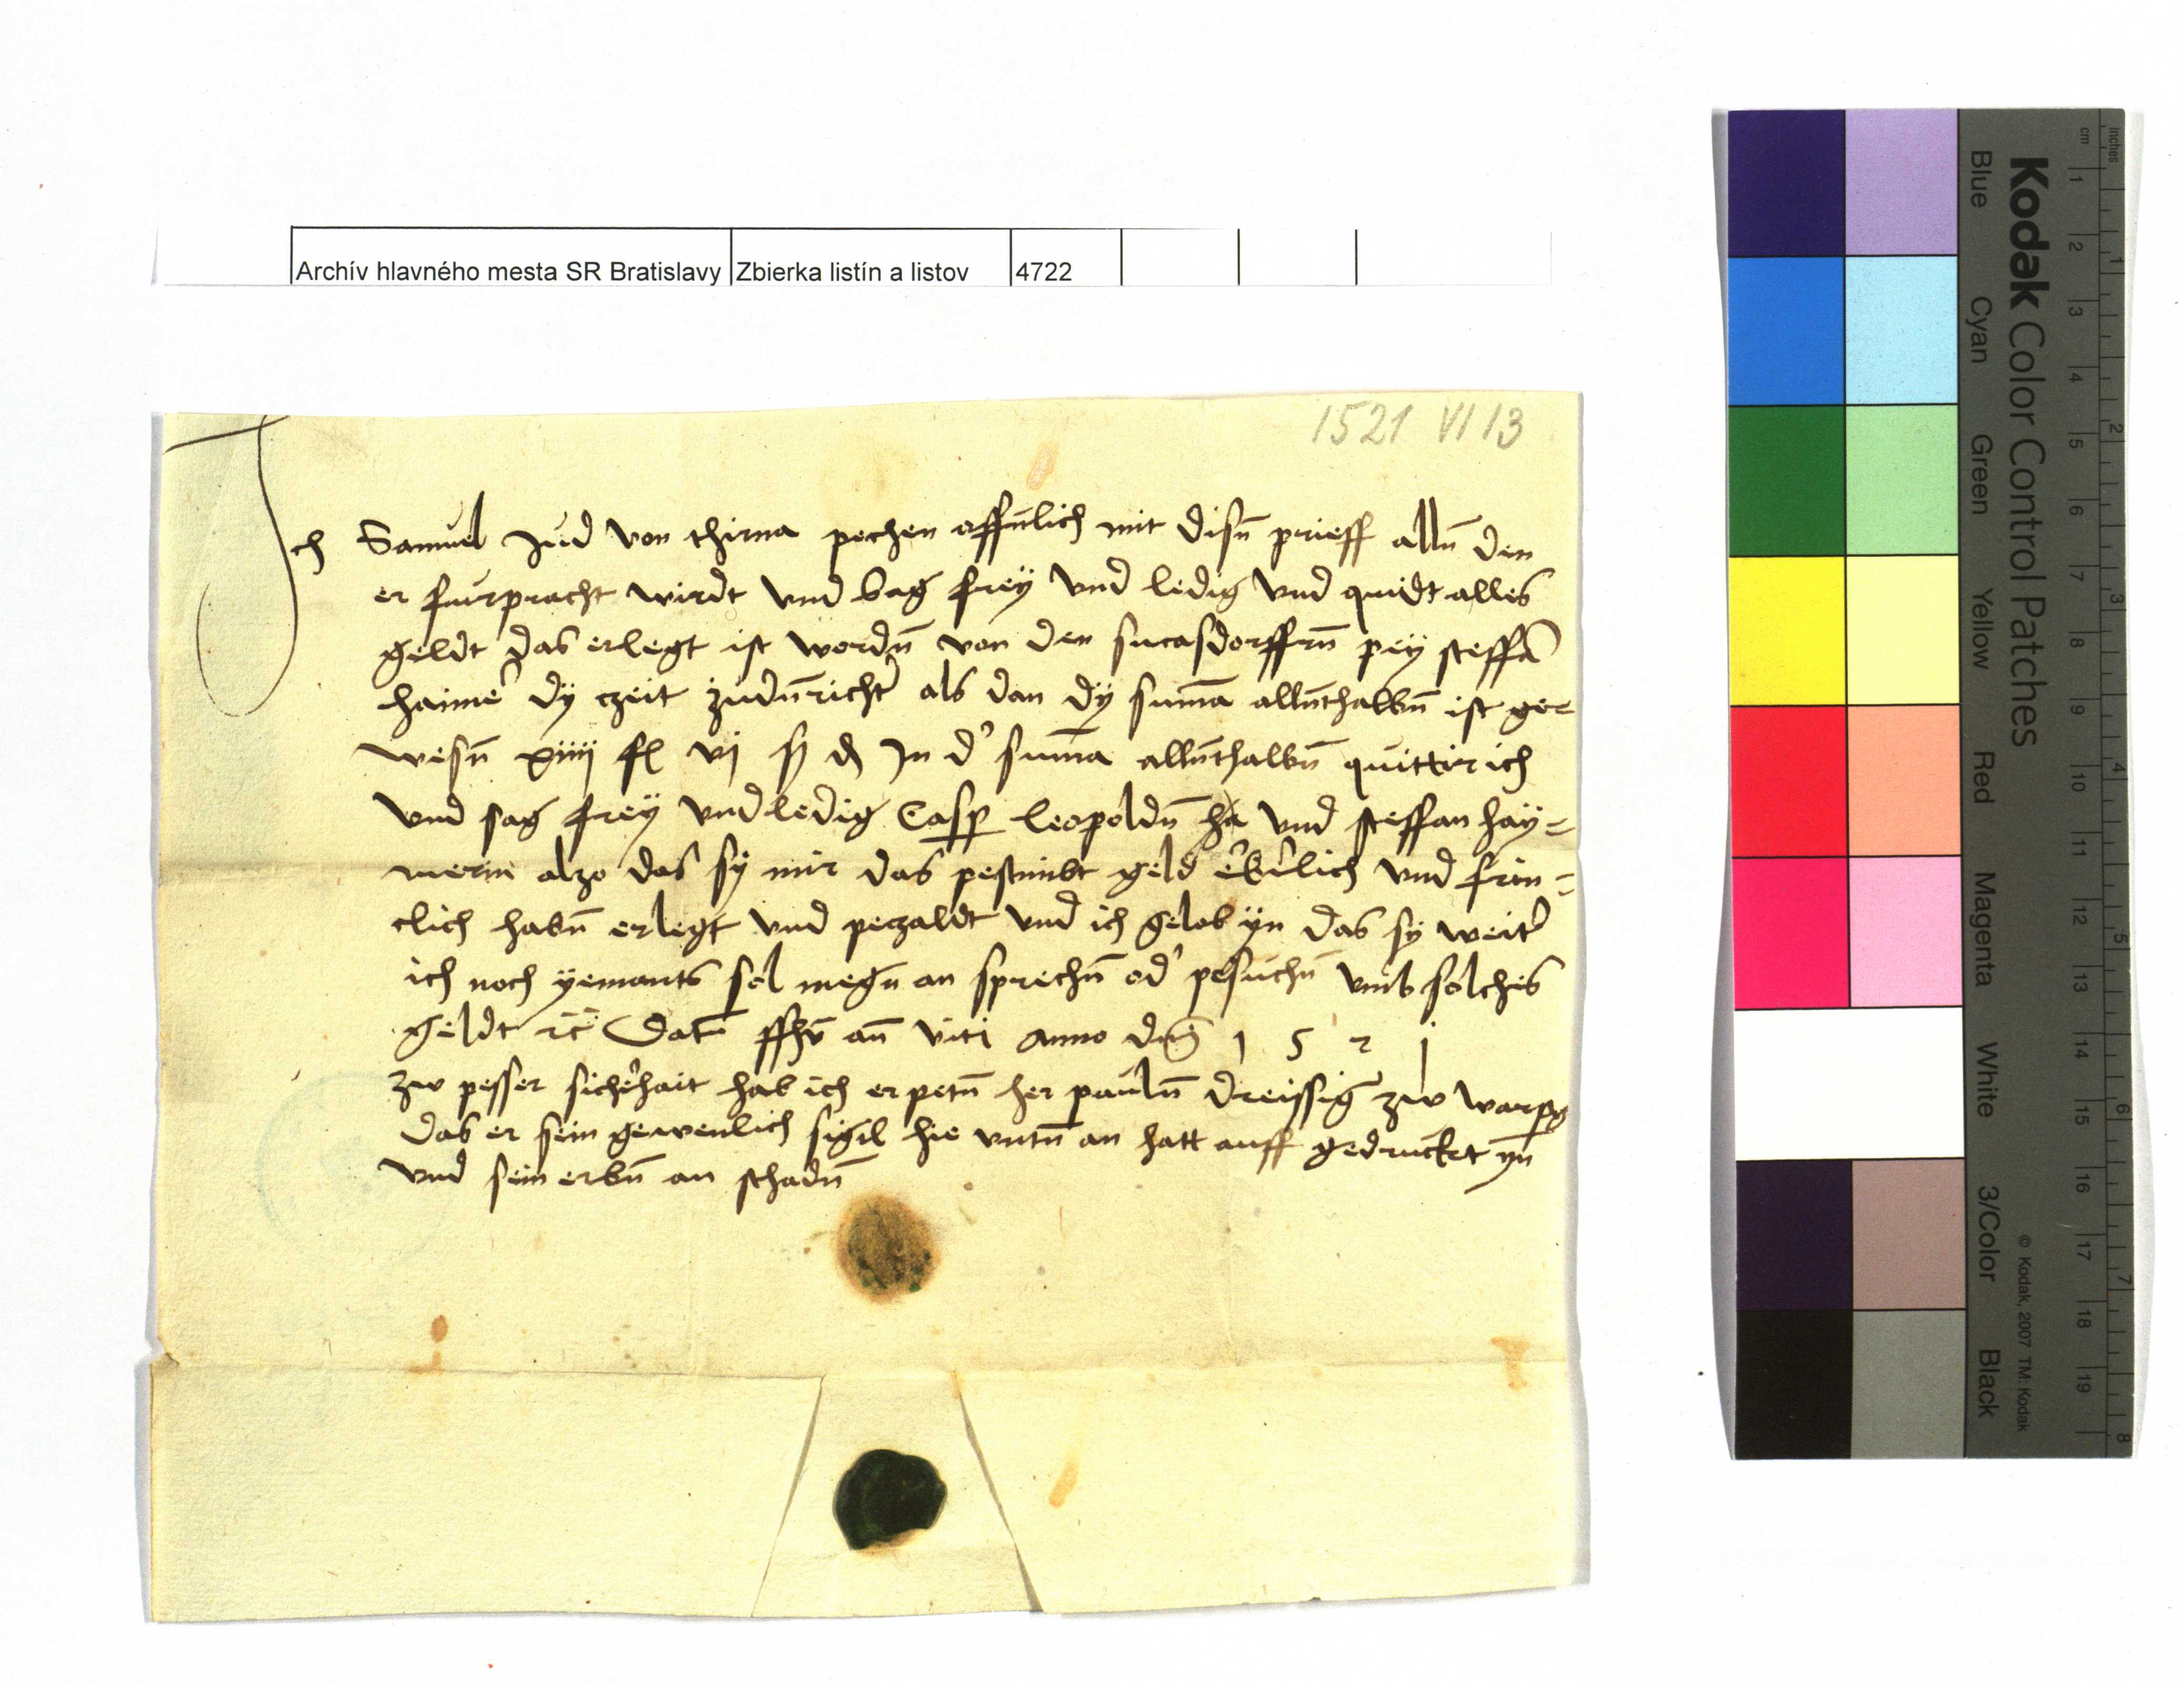 Archív hlavného mesta SR Bratislavy Zbierka listín a listov 4722
1521 VI 13
Ich Samuel Jud von thirna pechen offnlich mit disn̄ prieff alln̄ den
er furpracht wirdt vnd sag frey vnd ledig vnd quidt alles
geldt das erlegt ist wordn̄ von den sucasdorffrn̄ pey steffā
haime' dy czeit judn̄richt' als dan dy sum̄a alln̄thalbn̄ ist ge=
wesn̄ xiiij fl vj ß ₰ In d' sum̄a alln̄thalbn̄ quittir ich
vnd sag frey vnd ledig Casp leopoldn̄ vnd steffan hay=
merin alzo das sy mir das pestimbt geld vnd frin=
clich habn̄ erlegt vnd peczaldt vnd ich gelob yn das sy weit'
ich noch yemants sol megn an sprechn̄ od' pesuchn̄ vmb solchis
geldt Datū an̄ viti Anno dn̄i 1 5 2 1
zw pesser sich'hait hab ich erpetn̄ her pauln̄ dreissig zw warpg
das er sein gewenlich sigil hie vntn̄ an hatt auff gedruckt yn̄
vnd sein erbn̄ an schadn̄
Kodak Color Control Patches
Blue Cyan Green Yellow Red Magenta White 3/Color Black
© Kodak, 2007 TM: Kodak
cm 1 2 3 4 5 6 7 8 9 10 11 12 13 14 15 16 17 18 19
inches 1 2 3 4 5 6 7 8